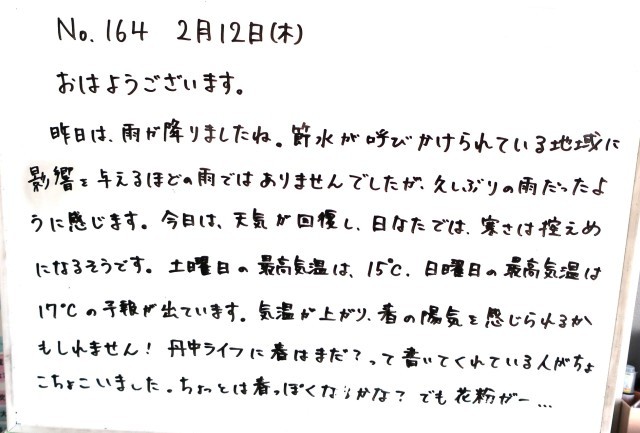 No.164 2月12日(木)
おはようございます。
昨日は、雨が降りましたね。節水が呼びかけられている地域に
影響を与えるほどの雨ではありませんでしたが、久しぶりの雨だったよ
うに感じます。今日は、天気が回復し、日なたでは、寒さは控えめ
になるそうです。土曜日の最高気温は、15℃、日曜日の最高気温は
17℃の予報が出ています。気温が上がり、春の陽気を感じられるか
もしれません！丹中ライフに春はまだ？って書いてくれている人がちょ
こちょこいました。ちょっとは春っぽくなるかな？でも花粉がー…